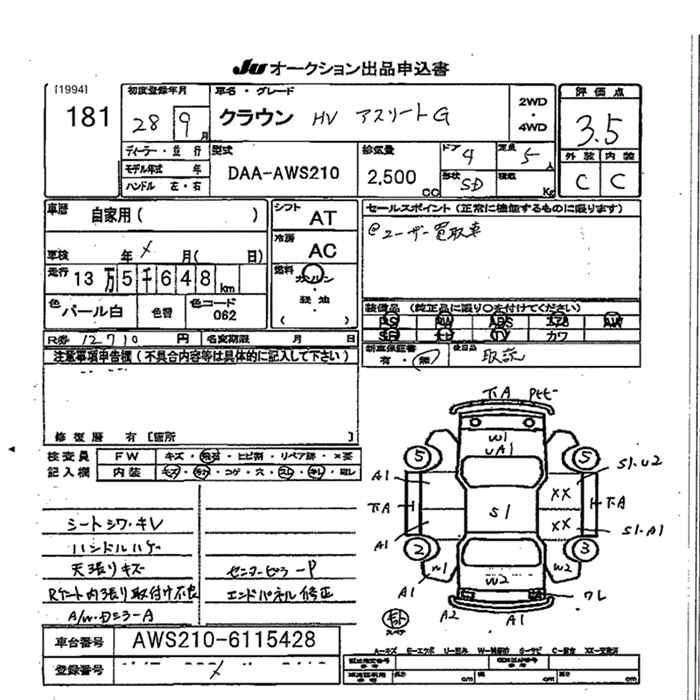 JU オークション出品申込書
[1994]
181
初度登録年月
28 9月
車名・グレード
クラウン HV アスリートG
2WD
・
4WD
評価点
3.5
外装 内装
C C
ディーラー・並行
モデル年式 年
ハンドル 左・右
型式
DAA-AWS210
排気量
2,500 CC
ドア 4
定員 5 人
形状 SD
積載 Kg
車歴 自家用( )
車検 年 月( 日)
走行 13万5千648km
シフト AT
冷房 AC
燃料 ガソリン・軽油
( )
色 パール白
色替
色コード 062
セールスポイント(正常に機能するものに限ります)
@ユーザー買取車
装備品(純正品に限り○を付けてください)
PS PW ABS エアB AW
SR ナビ TV カワ
新車保証書 有・無
後日品 取説
R券 12710 円
名変期限 月 日
注意事項申告欄(不具合内容等は具体的に記入して下さい)
修復歴 有 [箇所 ]
検査員
記入欄
FW キズ・飛石・ヒビ割・リペア跡・X要
内装 キズ・汚れ・コゲ・穴・スレ・キレ・補し
シートシワ・キレ
ハンドルハゲ
天張りキズ
Rゲート内張り取付け不良
A/W・Dミラー A
センターピラー P
エンドパネル修正
下A Pｷｽﾞ
W1
UA1
5 5
A1 S1.U2
下A S1 XX 下A
A1 XX S1.A1
2 3
W1 W2 W2
A1 ワレ
A2 A1
スペア
車台番号 AWS210-6115428
登録番号
A…キズ E…エクボ U…凹み W…補修跡 S…サビ C…腐食 XX…交換済
長さ cm 幅 cm 高さ cm